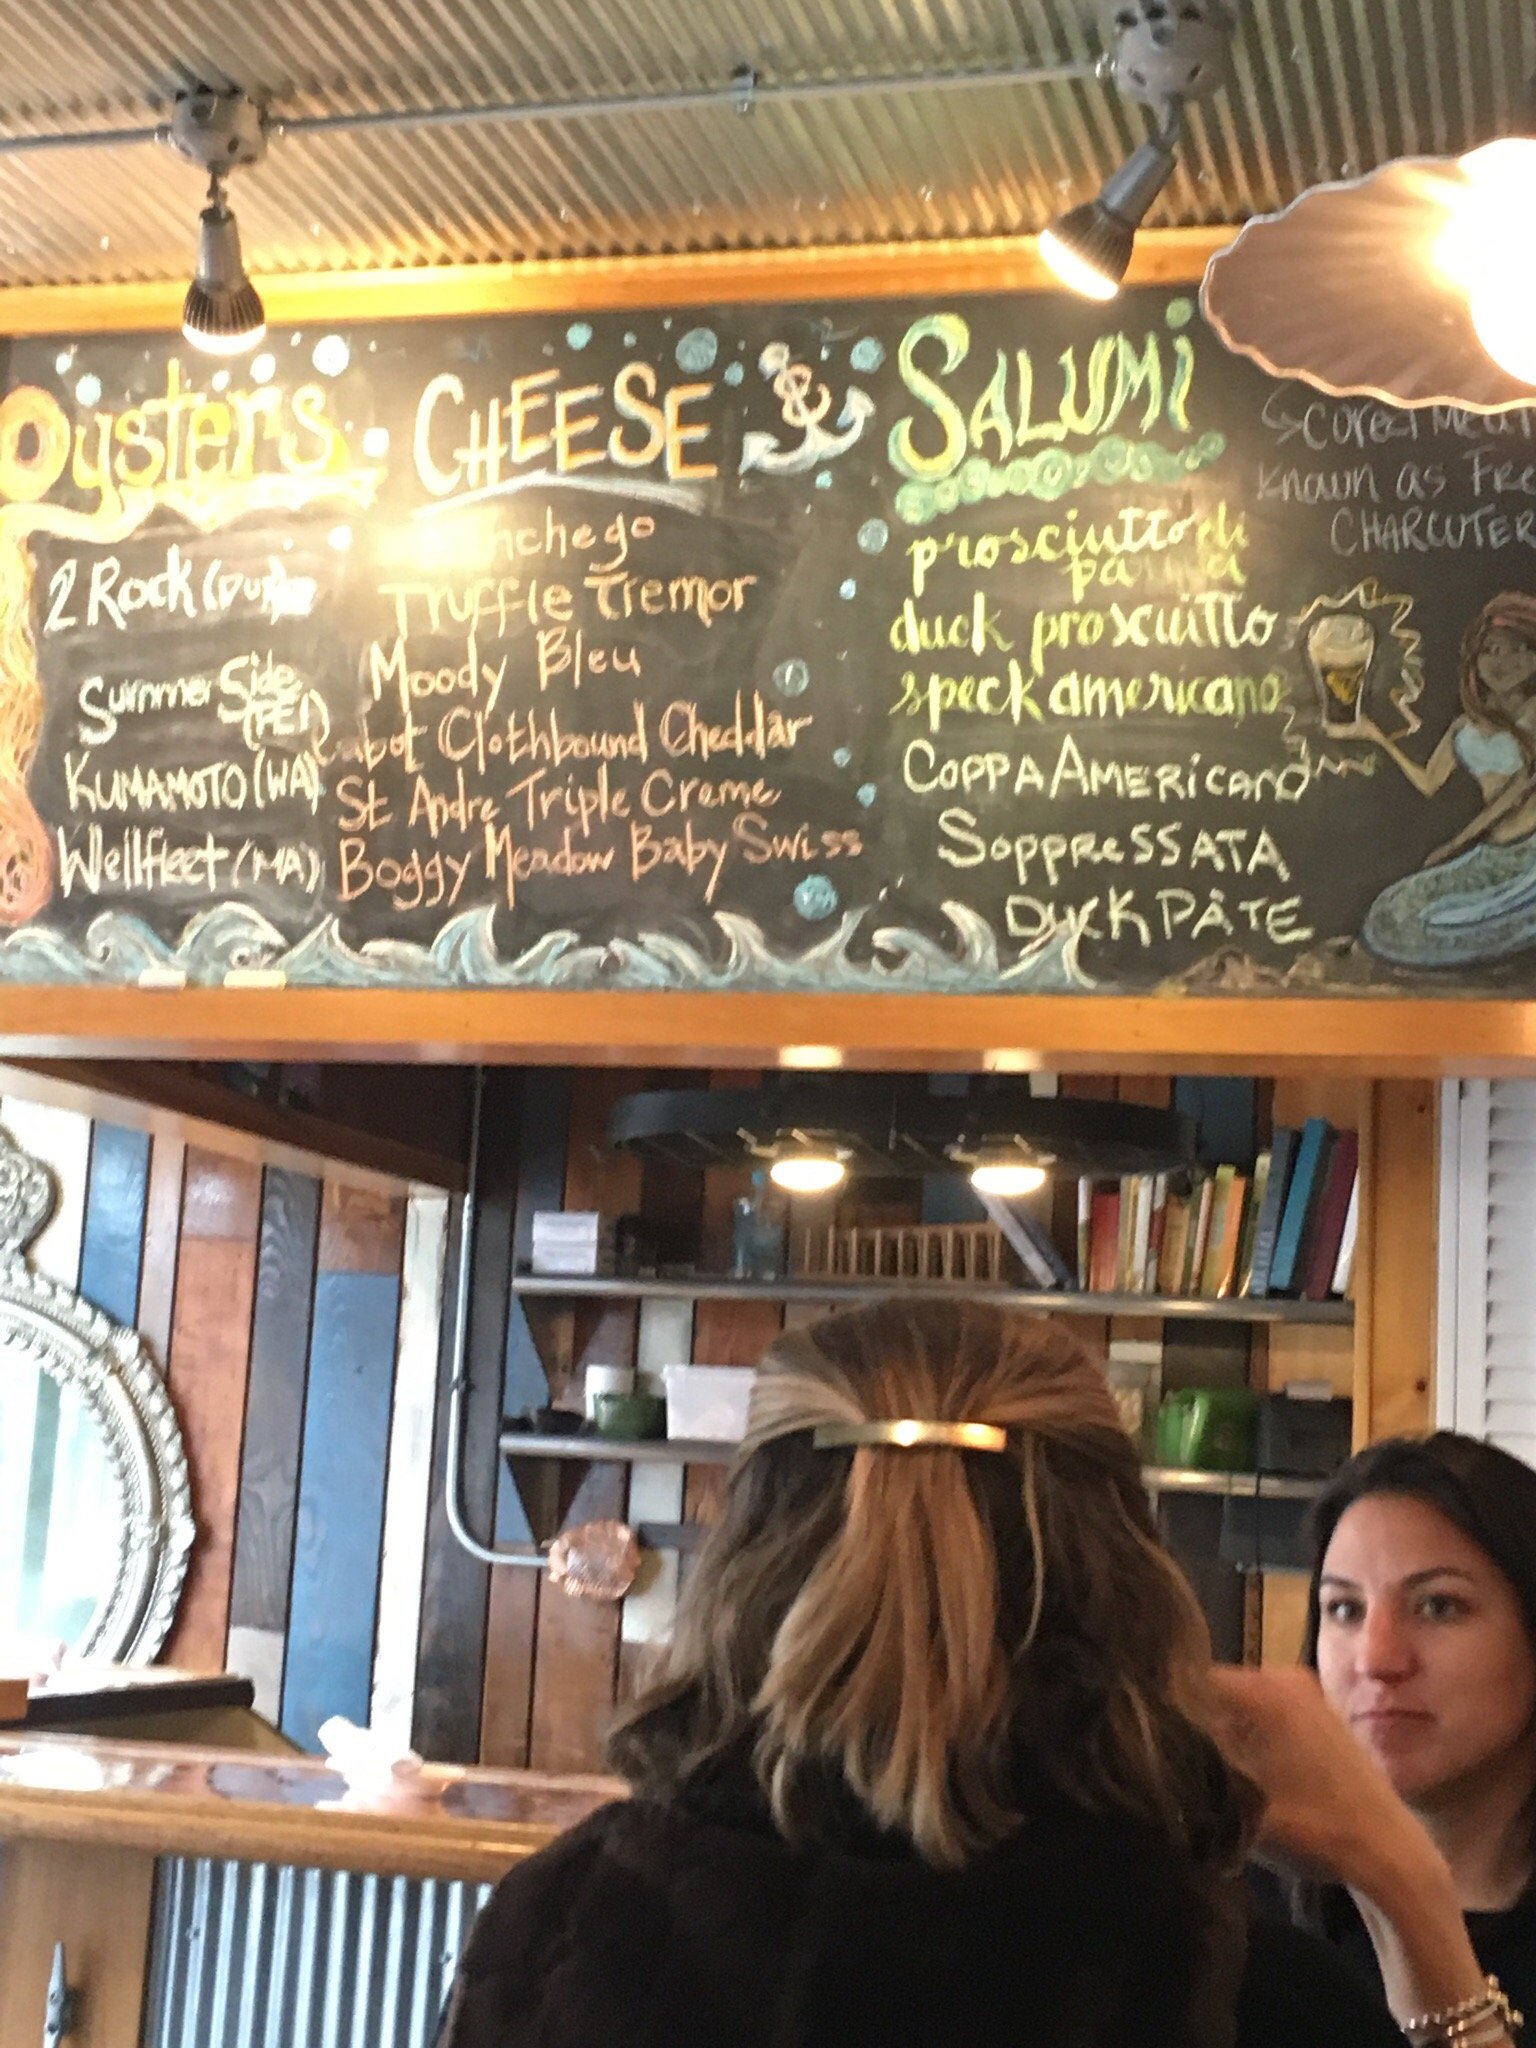 Oysters
2 Rock
Summer Side
(PEI)
KUMAMOTO (WA)
Wellfleet (MA)
CHEESE
Truffle Tremor
Moody Bleu
Cabot Clothbound Cheddar
St Andre Triple Creme
Boggy Meadow Baby Swiss
&
SALUMi
prosciutto di
parma
duck prosciutto
speck americano
COPPA AMERiCANO
SOPPRESSATA
DUCK PÂTE
known as